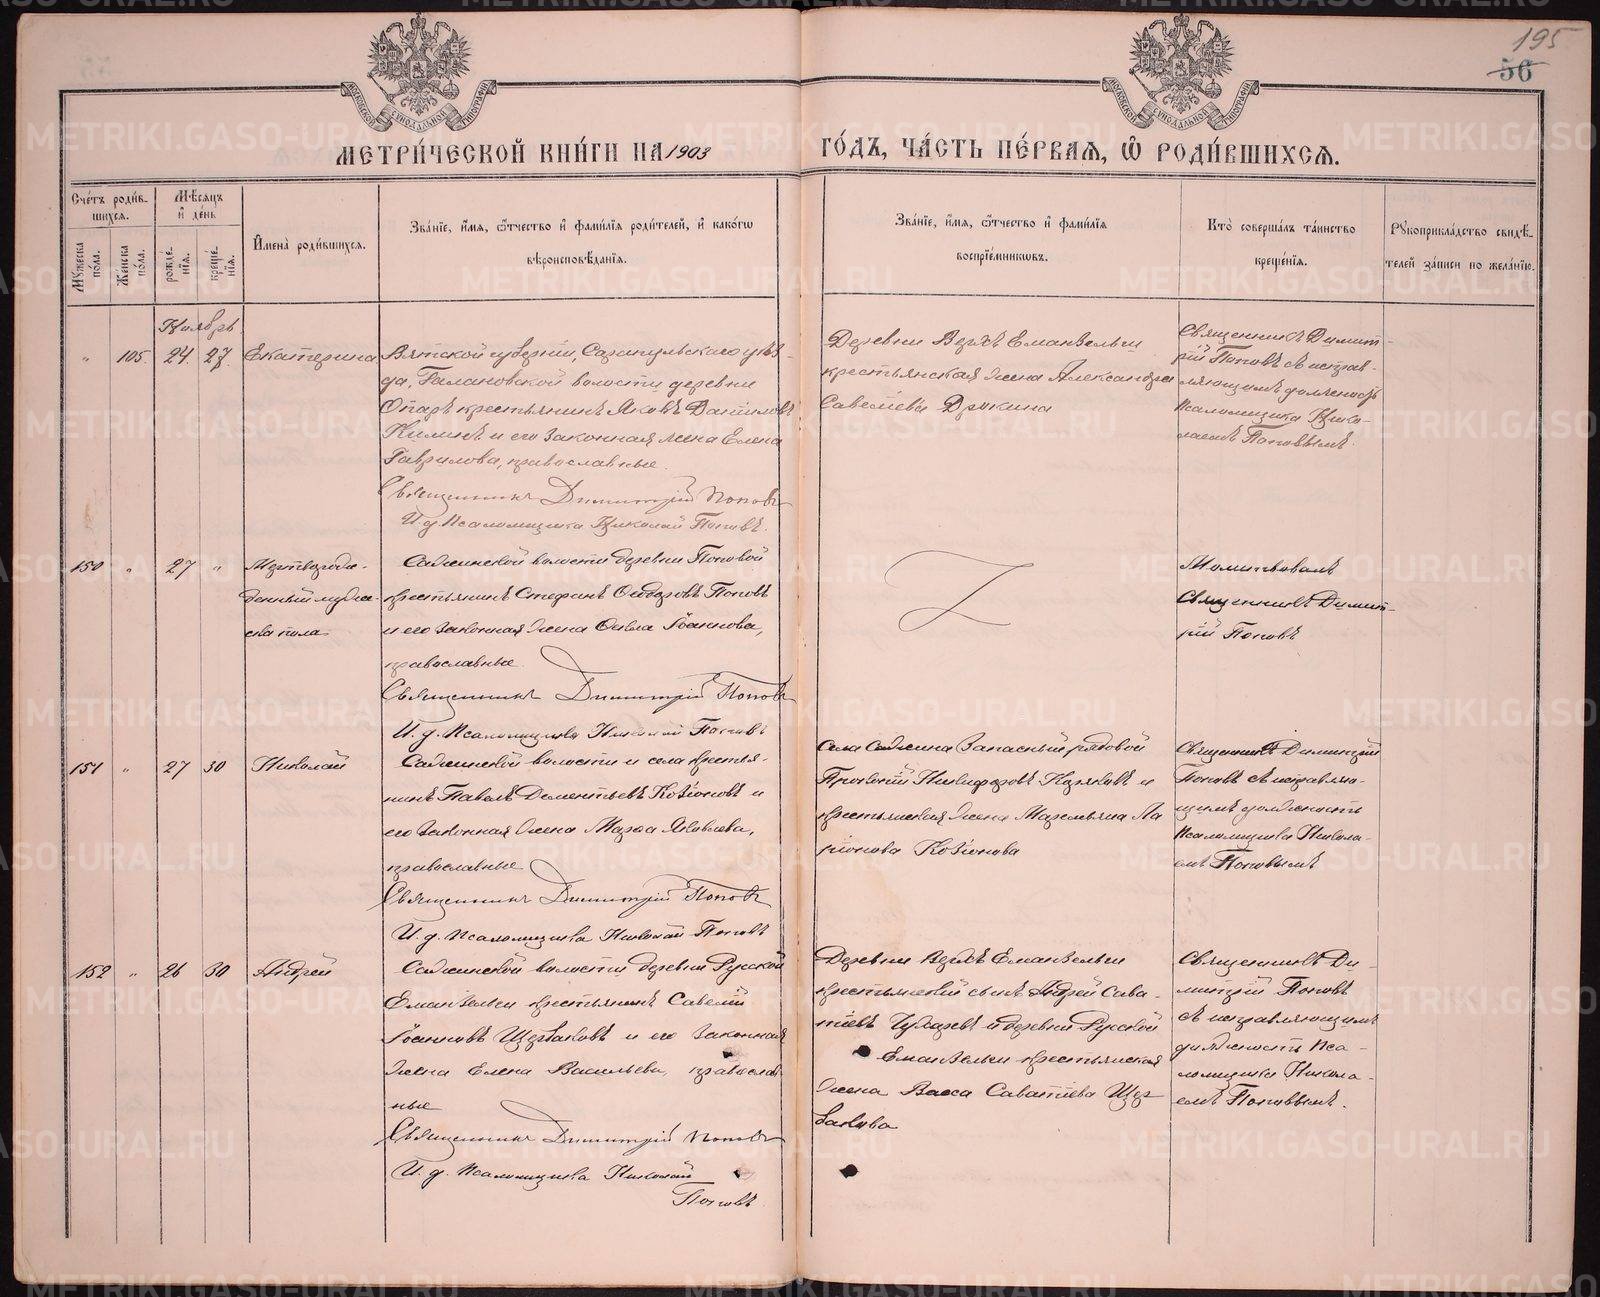 195
56
МОСКОВСКОЙ СѴНОДАЛЬНОЙ ТИПОГРАФІИ
МОСКОВСКОЙ СѴНОДАЛЬНОЙ ТИПОГРАФІИ
МЕТРИ́ЧЕСКОЙ КНИ́ГИ НА 1903 ГО́ДЪ, ЧА́СТЬ ПЕ́РВАЯ, Ѡ РОДИ́ВШИХСЯ.
Сче́тъ роди́в-
шихся.
Мѣ́сяцъ
и де́нь
Мꙋжеска по́ла.
Женска по́ла.
рожде́-
нїя.
креще́-
нїя.
Имена̀ роди́вшихся.
Зва́нїе, и́мя, ѻ҆́тчество и фами́лїя роди́телей, и како́гѡ
вѣроисповѣ́данїя.
Зва́нїе, и́мя, ѻ҆́тчество и фами́лїя
воспрїе́мниковъ.
Кто̀ соверша́лъ та́инство
креще́нїя.
Рꙋкоприкла́дство свидѣ́-
телей за́писи по жела́нїю.
Ноябрь.
" 105 24. 27. Екатерина
Вятской губерніи, Сарапульскаго уѣз-
да, Галановской волости деревни
Опаръ крестьянинъ Яковъ Даниловъ
Килинъ и его законная жена Елена
Гаврилова, православные.
Священникъ Димитрій Поповъ
И. д. Псаломщика Николай Поповъ.
Деревни Верхъ Еманзельги
крестьянская жена Александра
Савелиева Дрокина
Священникъ Димит-
рій Поповъ съ исправ-
ляющимъ должность
Псаломщика Нико-
лаемъ Поповымъ.
150 " 27 " Мертворож-
денный муже-
ска пола
Сажинской волости деревни Поповой
крестьянинъ Стефанъ Ѳеодоровъ Поповъ
и его законная жена Ѳекла Іоаннова,
православные.
Священникъ Димитрій Поповъ
И. д. Псаломщика Николай Поповъ
Молитвовалъ
Священникъ Димит-
рій Поповъ
151 " 27 30 Николай
Сажинской волости и села крестья-
нинъ Павелъ Дементьевъ Козіоновъ и
его законная жена Марѳа Яковлева,
православные
Священникъ Димитрій Поповъ
И. д. Псаломщика Николай Поповъ
Села Сажина Запасный рядовой
Прокопій Никифоровъ и
крестьянская жена Маремьяна Ла
ріонова Козіонова
Священникъ Димитрій
Поповъ съ исправляю-
щимъ должность
Псаломщика Никола-
емъ Поповымъ
152 " 26 30 Андрей
Сажинской волости деревни Русской
Еманзельги крестьянинъ Савелій
Іоанновъ Щербаковъ и его законная
жена Елена Васильева, православ-
ные
Священникъ Димитрій Поповъ
И. д. Псаломщика Николай
Поповъ
Деревни Верхъ Еманзельги
крестьянскій сынъ Андрей Сава-
тіевъ и деревни Русской
Еманзельги крестьянская
жена Васса Саватіева Щер-
бакова
Священникъ Ди-
митрій Поповъ
съ исправляющимъ
должность Пса-
ломщика Никола-
емъ Поповымъ.
METRIKI.GASO-URAL.RU